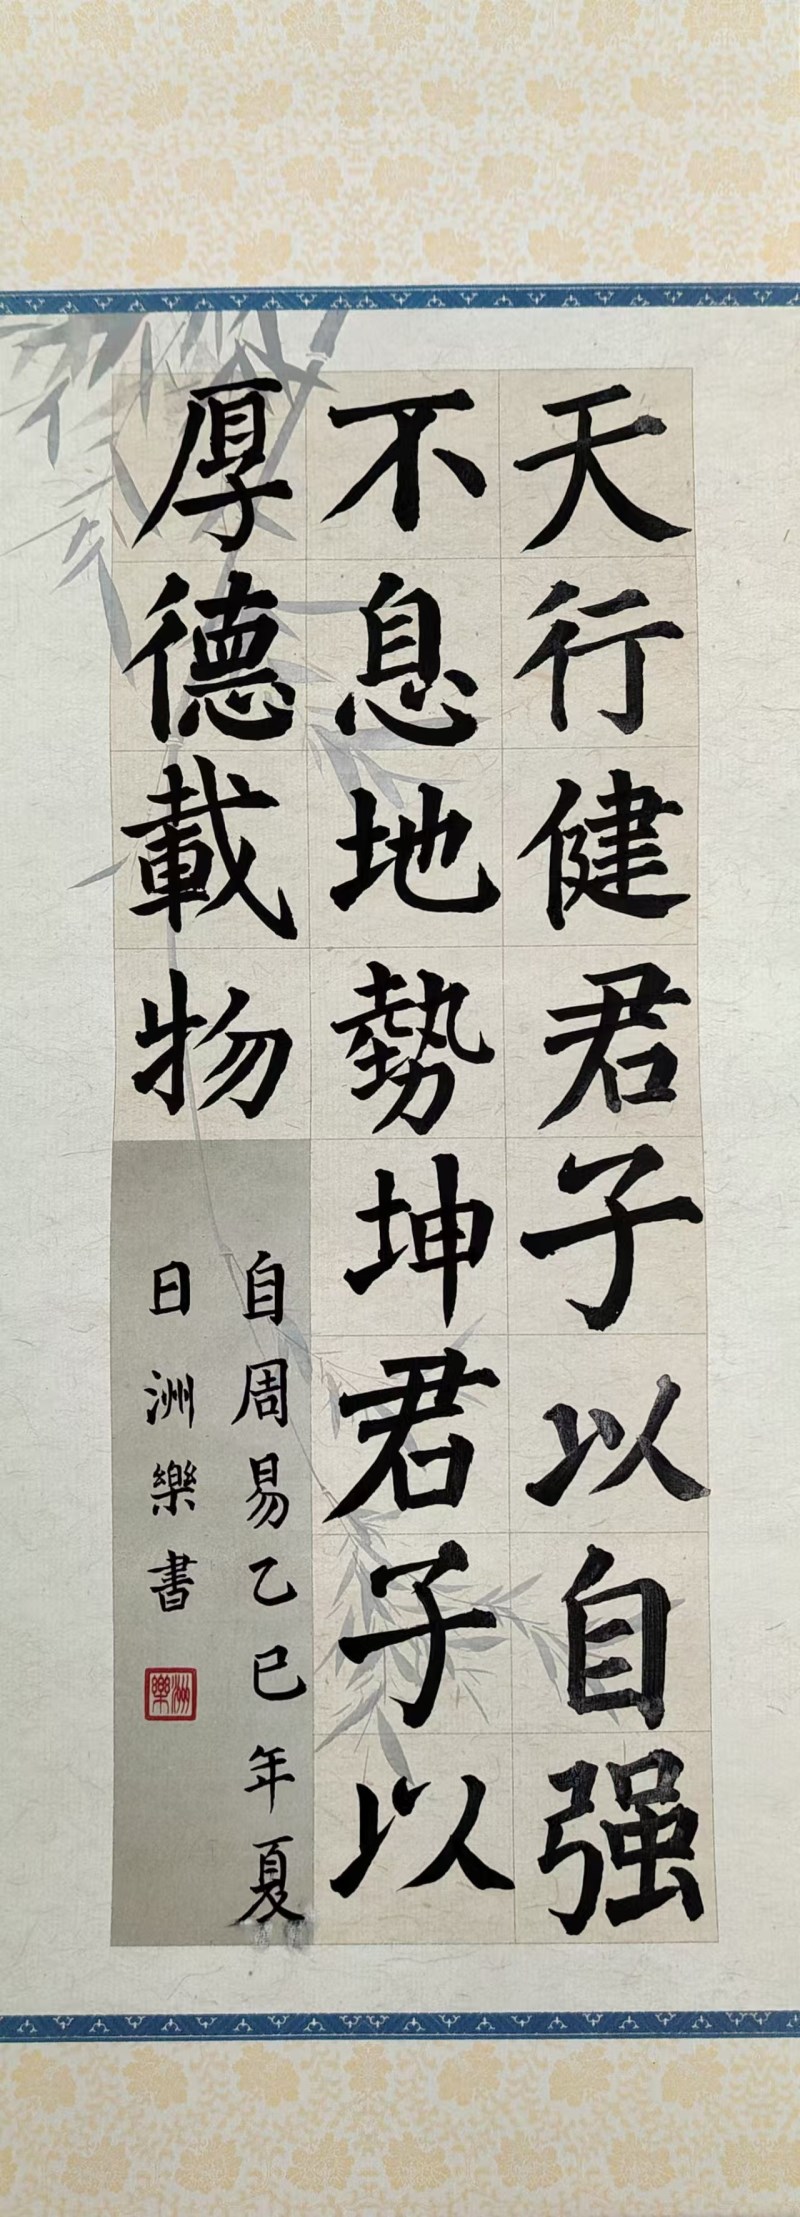 天行健君子以自强
不息地勢坤君子以
厚德載物
自周易乙巳年夏
日洲樂書
洲樂